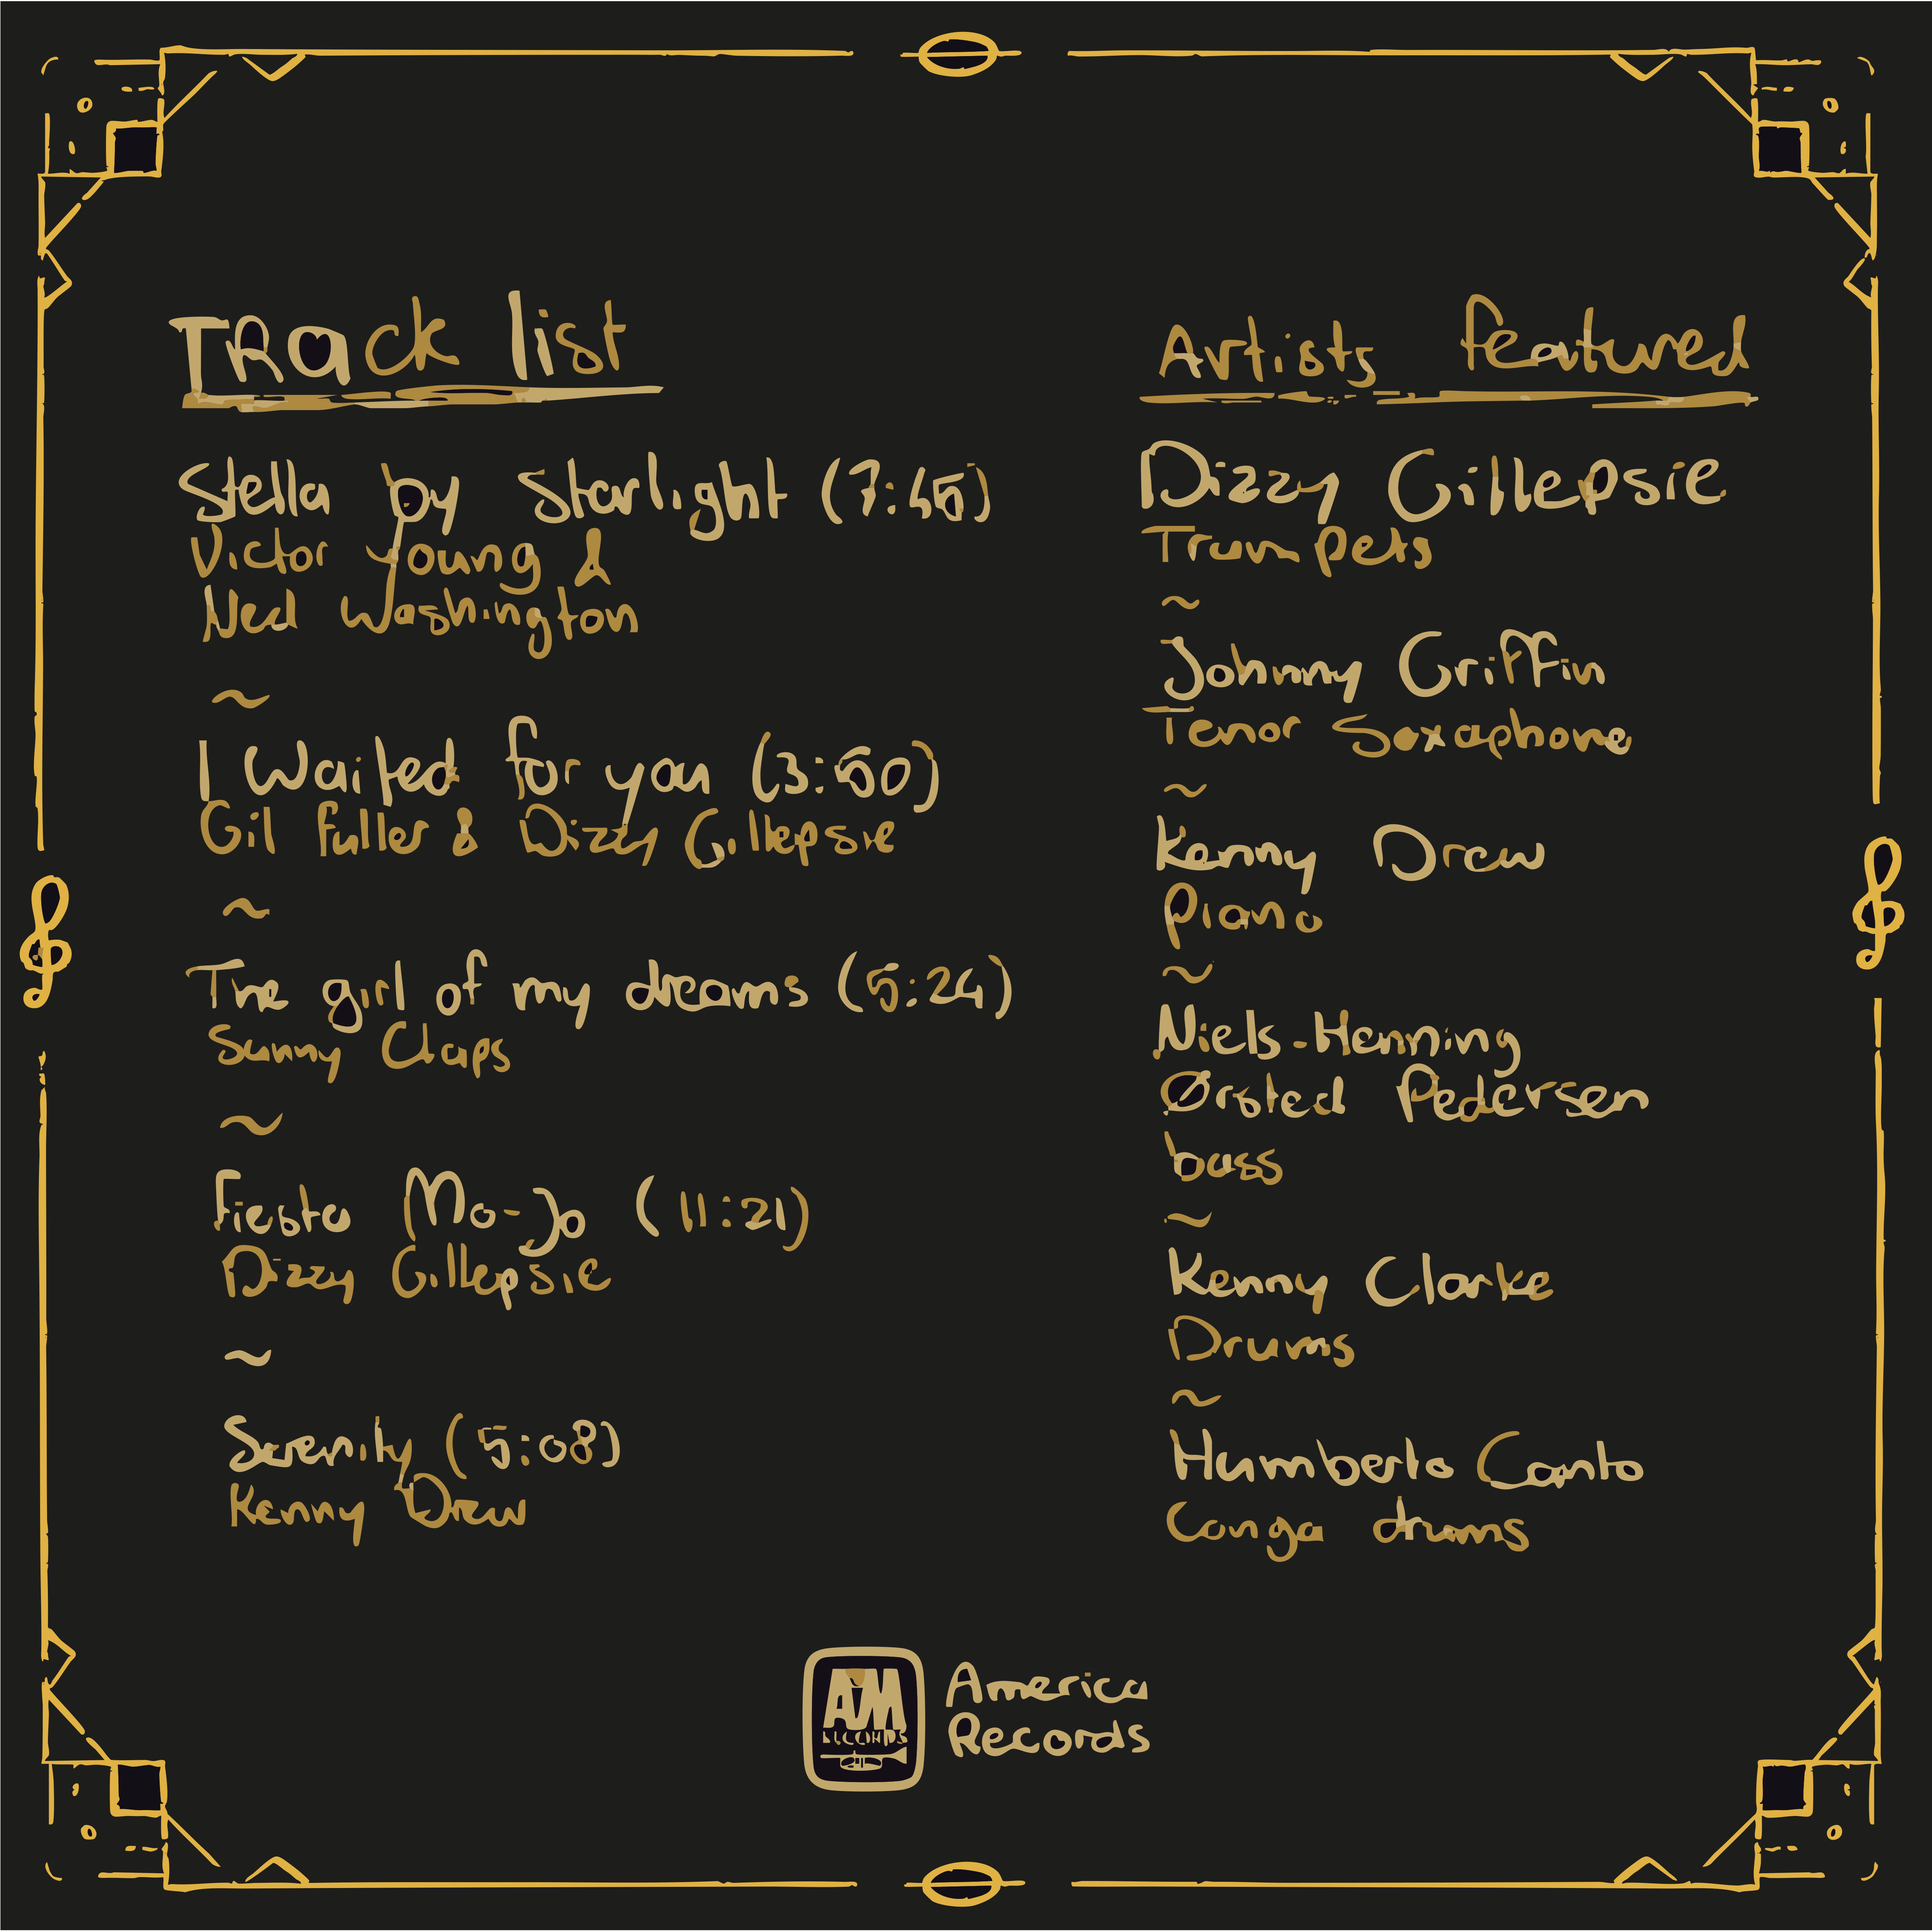 Track list
Stella by Starlight (7:45)
Victor Young &
Ned Washington
~
I Waited for you (3:50)
Gil Fuller & Dizzy Gillepsie
~
The girl of my dreams (5:24)
Sunny Claps
~
Fiesta Mo-Jo (11:21)
Dizzy Gillepsie
~
Serenity (5:08)
Kenny Drew
Artists featured
Dizzy Gillepsie
Trumpets
~
Johnny Griffin
Tenor Saxaphone
~
Kenny Drew
Piano
~
Niels-Henning
Ørsted Pedersen
bass
~
Kenny Clarke
Drums
~
Humberto Canto
Conga drums
AM
RECORDS
America
Records